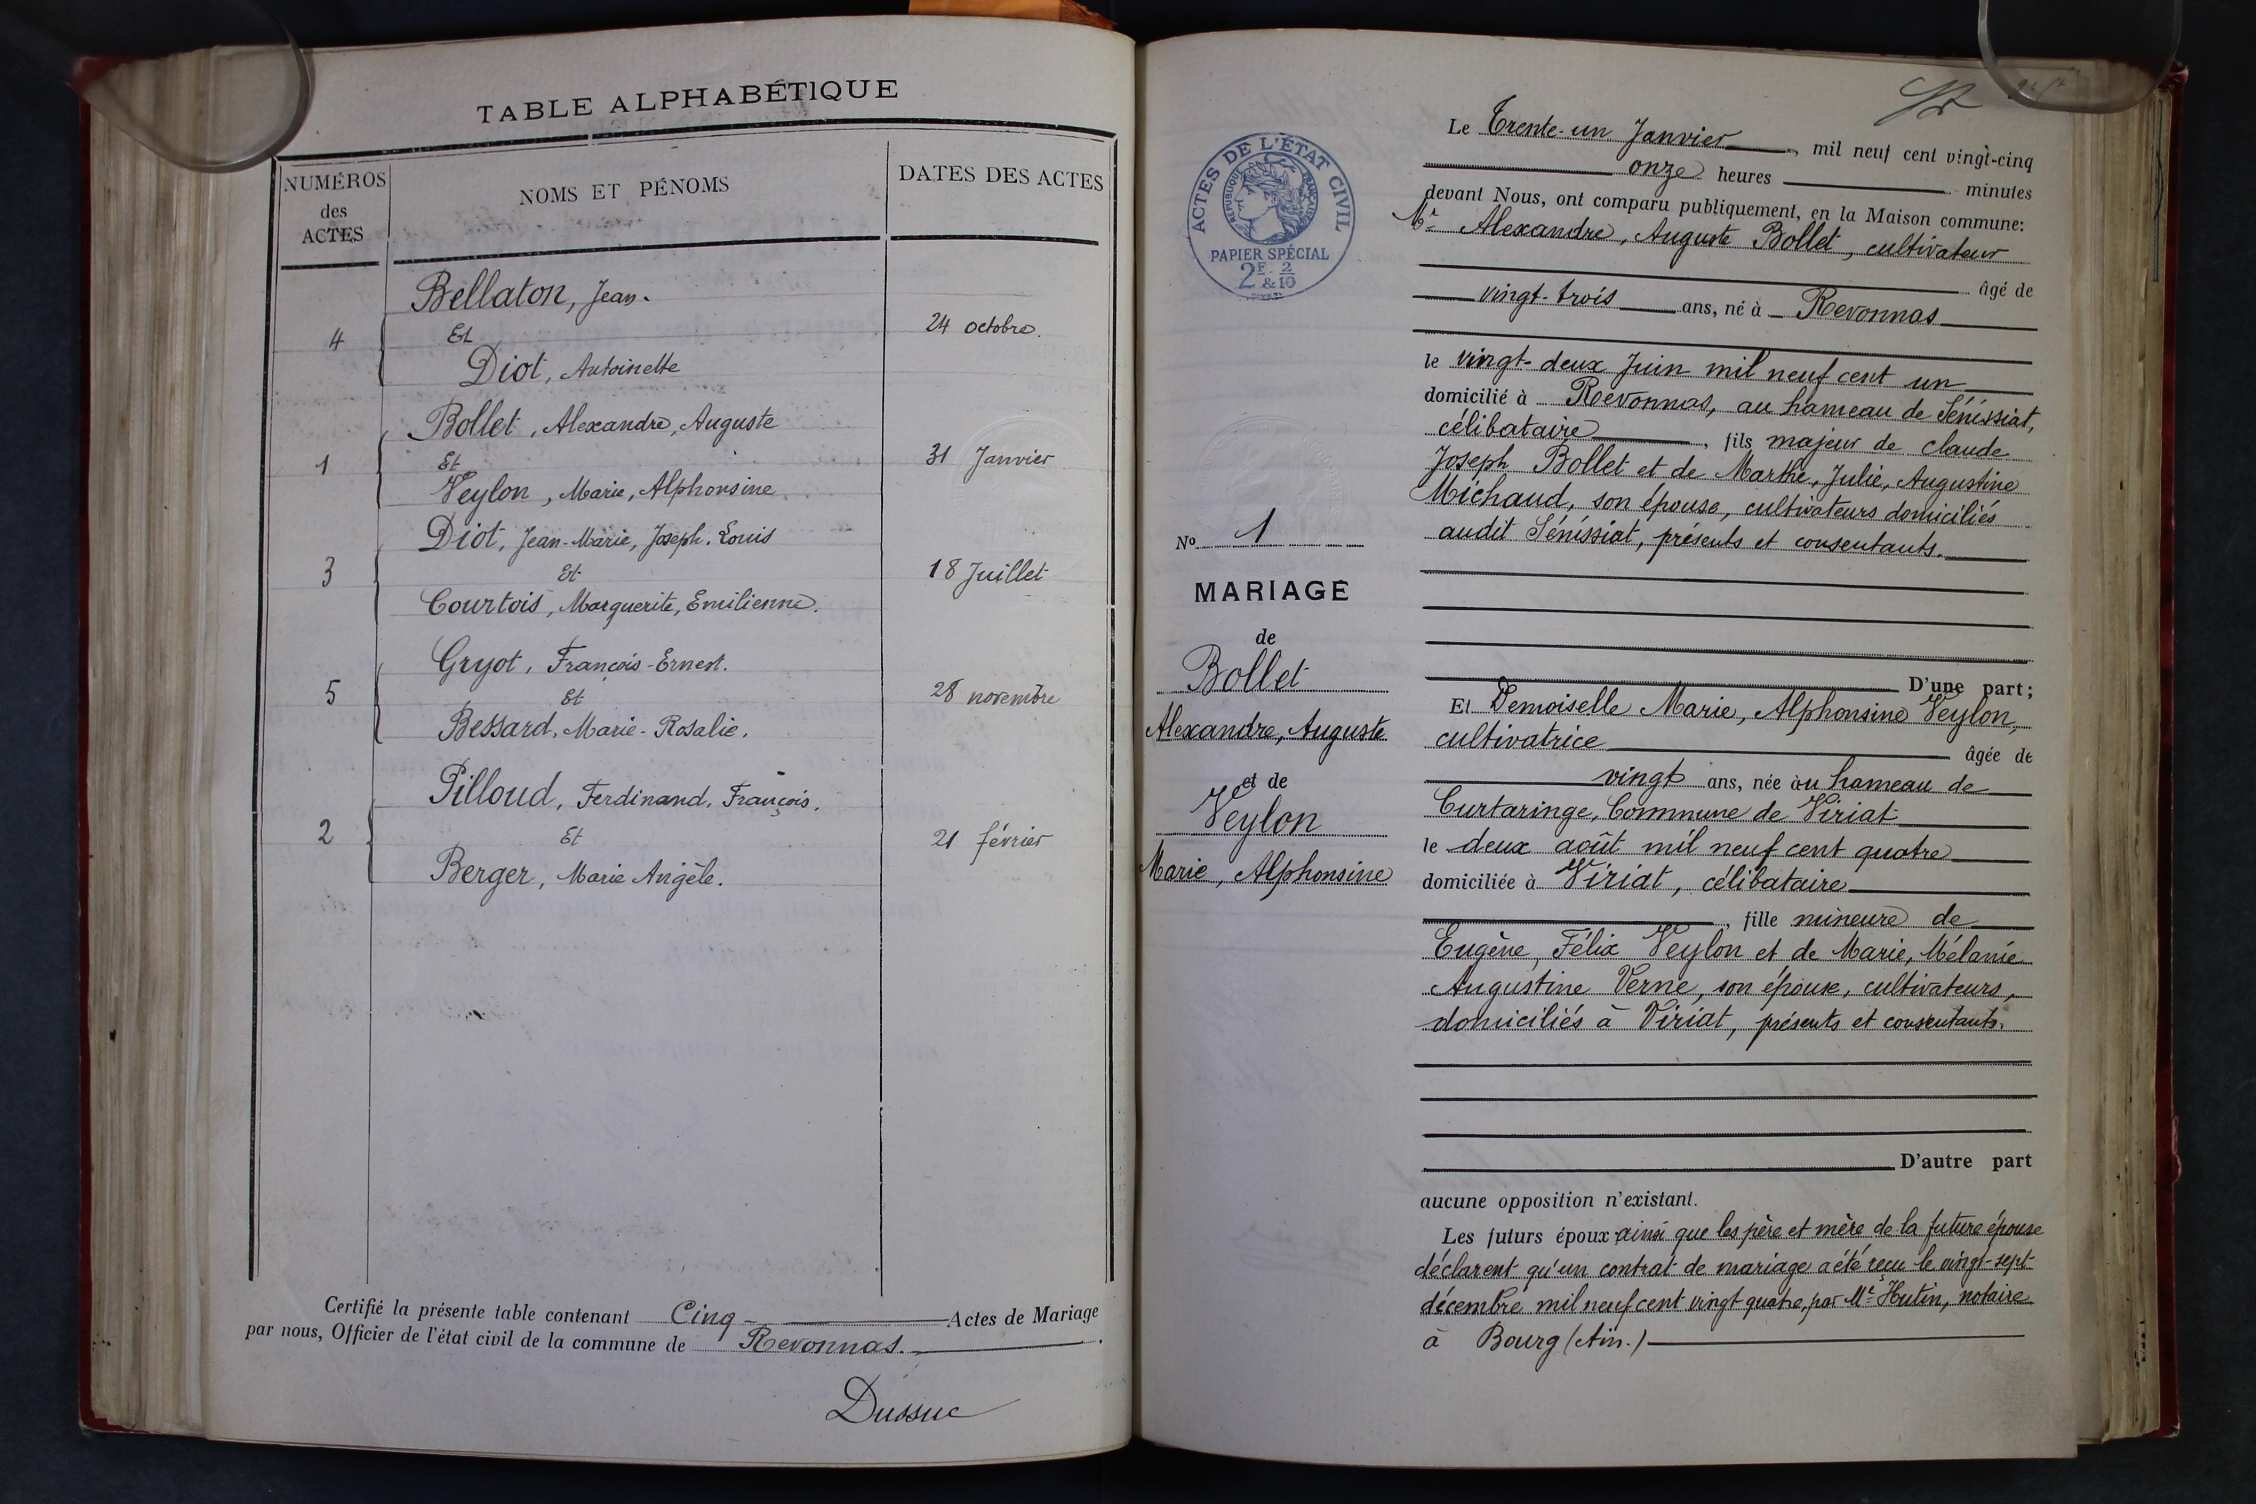 TABLE ALPHABÉTIQUE
NUMÉROS
des
ACTES
NOMS ET PÉNOMS
DATES DES ACTES
Bellaton, Jean.
4
Et
24 octobre.
Diot, Antoinette
Bollet, Alexandre, Auguste
1
Et
31 Janvier
Veylon, Marie, Alphonsine
Diot, Jean-Marie, Joseph. Louis
3
Et
18 Juillet
Courtois, Marguerite, Emilienne.
Gryot, François-Ernest.
5
Et
28 novembre
Bessard, Marie-Rosalie.
Pilloud, Ferdinand, François.
2
Et
21 février
Berger, Marie Angèle.
Certifié la présente table contenant Cinq Actes de Mariage
par nous, Officier de l'état civil de la commune de Revonnas.
Dussuc
ACTES DE L'ÉTAT CIVIL
RÉPUBLIQUE FRANÇAISE
PAPIER SPÉCIAL
2F & 2/10
No 1
MARIAGE
de
Bollet
Alexandre, Auguste
et de
Veylon
Marie, Alphonsine
Le Trente-un Janvier, mil neuf cent vingt-cinq
onze heures minutes
devant Nous, ont comparu publiquement, en la Maison commune:
Mr Alexandre, Auguste Bollet, cultivateur
âgé de
vingt-trois ans, né à Revonnas
le vingt-deux Juin mil neuf cent un
domicilié à Revonnas, au hameau de Sénissiat,
célibataire, fils majeur de claude
Joseph Bollet et de Marthe, Julie, Augustine
Michaud, son épouse, cultivateurs domiciliés
audit Sénissiat, présents et consentants.
D'une part;
Et Demoiselle Marie, Alphonsine Veylon,
cultivatrice âgée de
vingt ans, née au hameau de
Curtaringe, Commune de Viriat
le deux août mil neuf cent quatre
domiciliée à Viriat, célibataire
, fille mineure de
Eugène, Félix Veylon et de Marie, Mélanie
Augustine Verne, son épouse, cultivateurs,
domiciliés à Viriat, présents et consentants.
D'autre part
aucune opposition n'existant.
Les futurs époux ainsi que les père et mère de la future épouse
déclarent qu'un contrat de mariage a été reçu le vingt-sept
décembre mil neuf cent vingt quatre, par Me Hutin, notaire
à Bourg (Ain.)